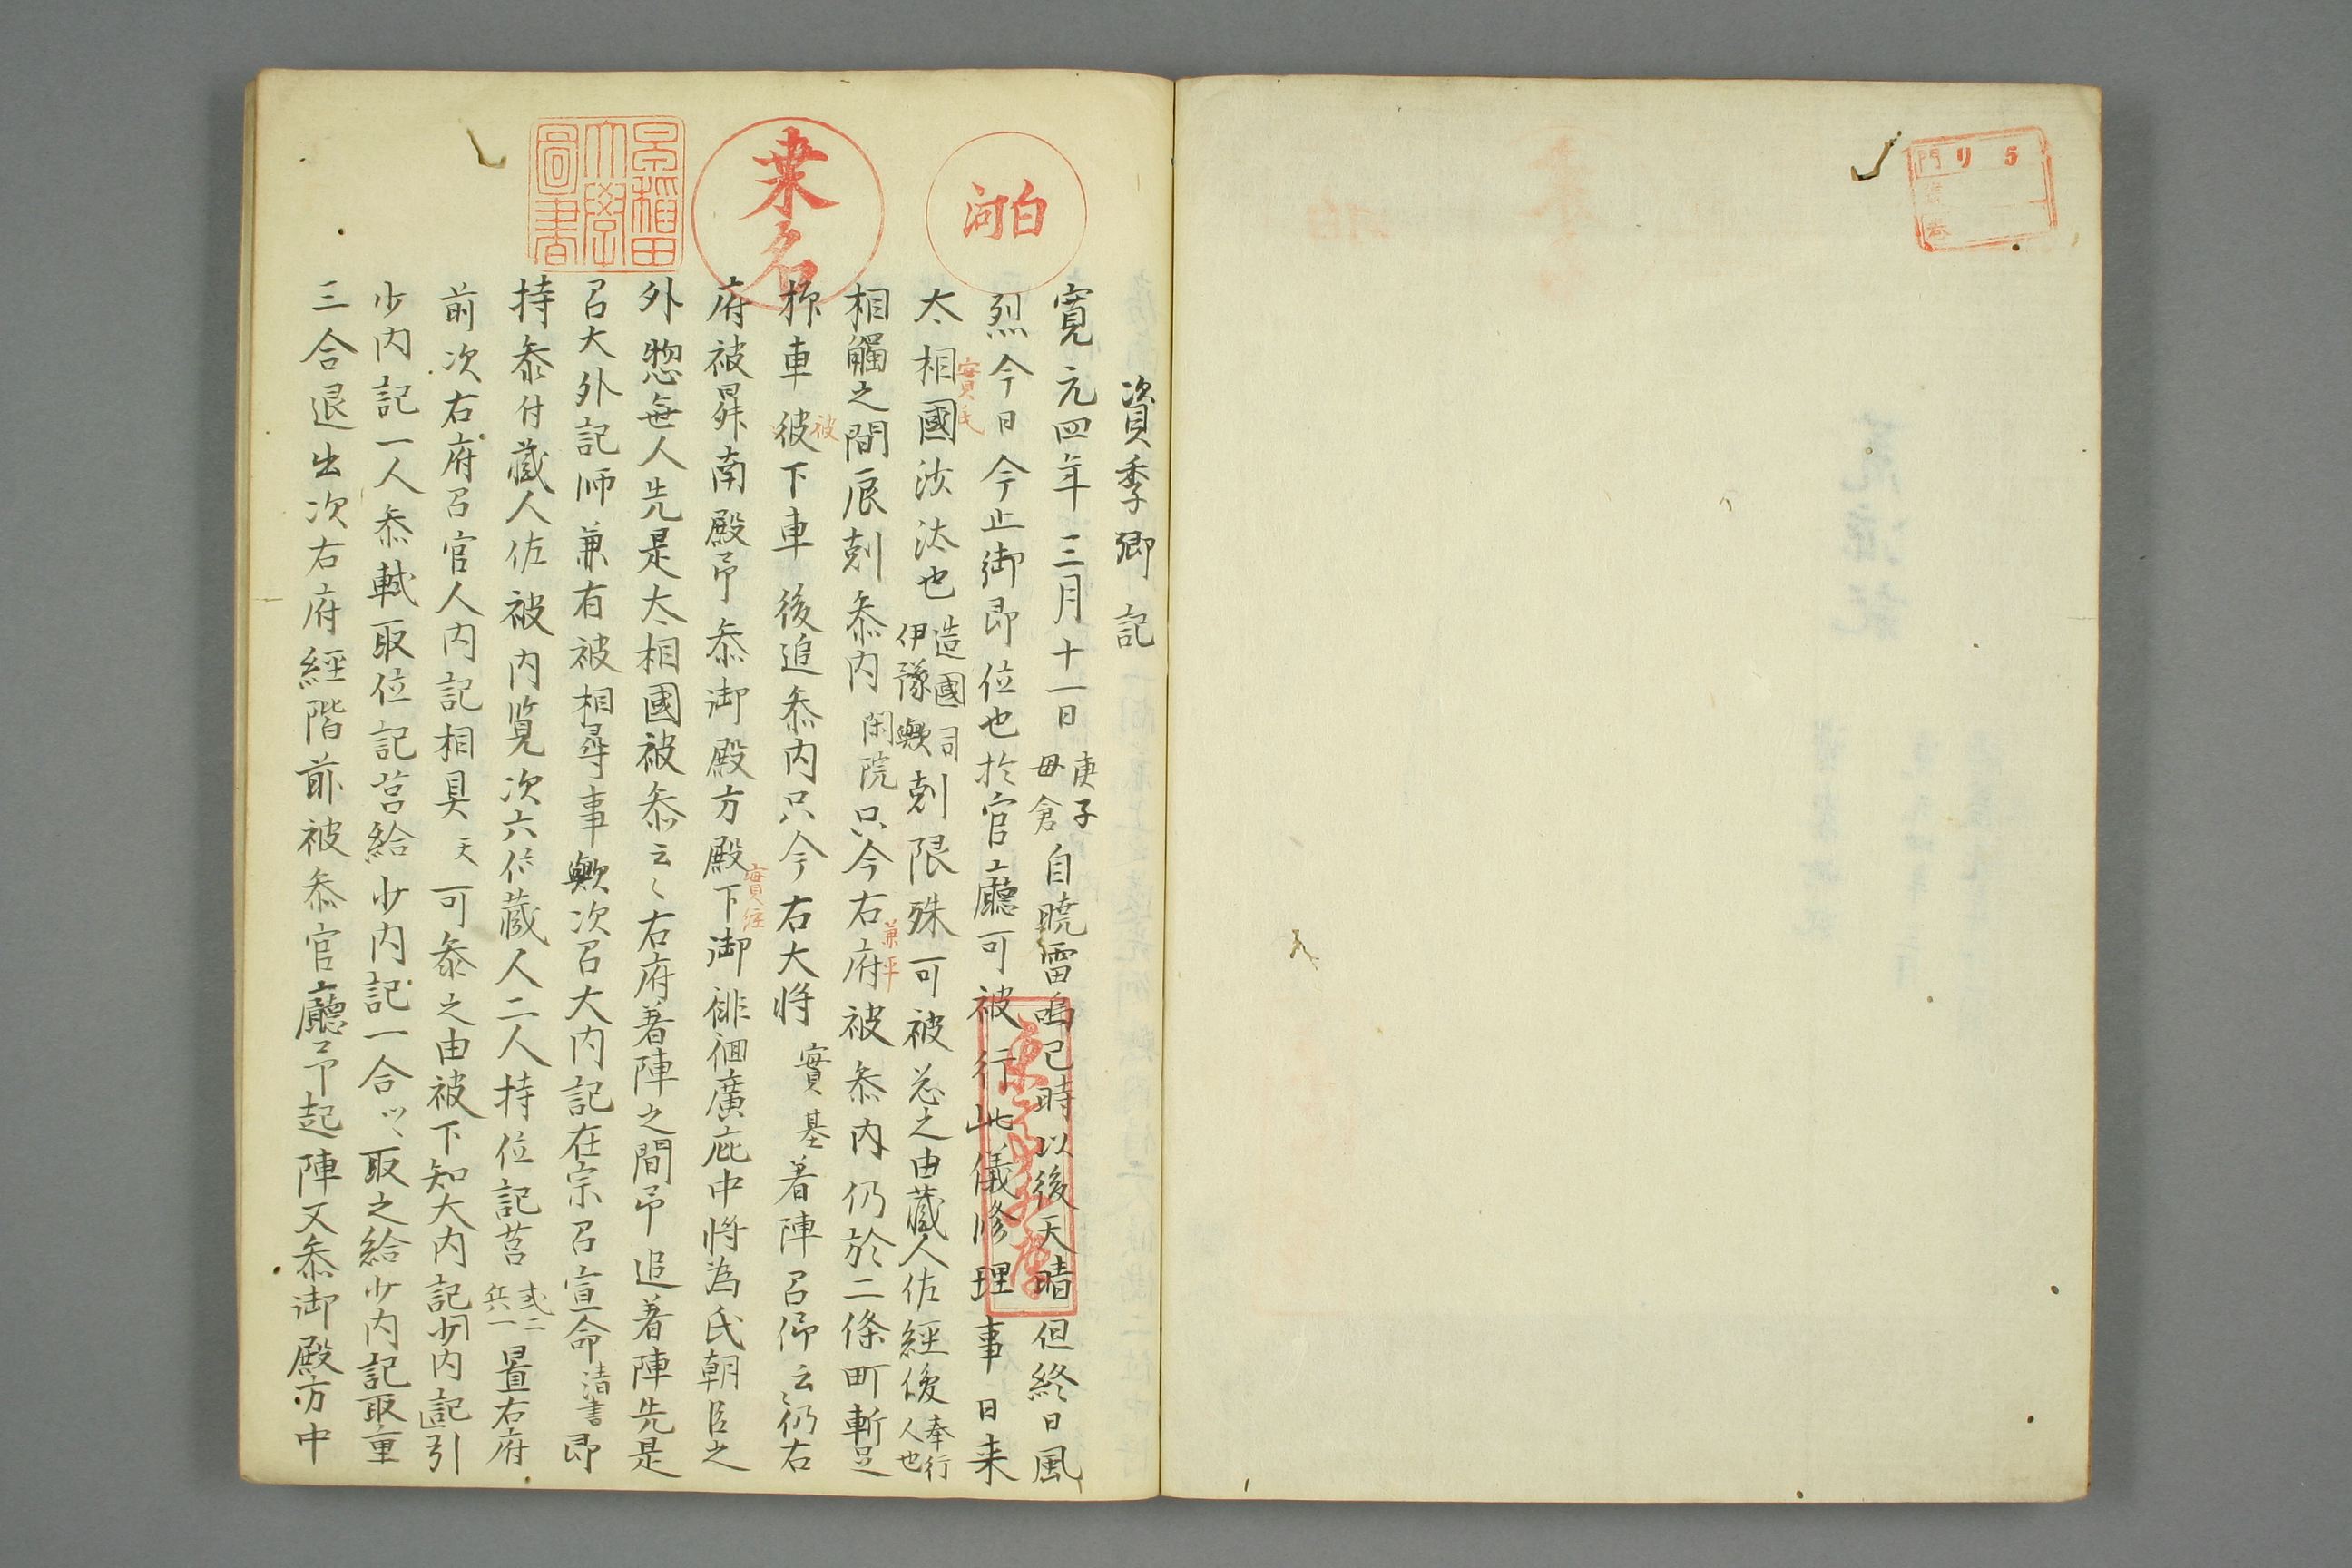 門 リ 5
白河
桒名
早稲田大學圖書
資季卿記
寛元四年三月十一日庚子毋倉自暁雷鳴巳時以後天晴但終日風
烈今日今止御即位也於官廳可被行此儀修理事日来
太相國實氏沙汰也造國司伊豫歟剋限殊可被忩之由蔵人佐經俊奉行人也
相觸之間辰剋叅内閑院只今右府兼平被叅内仍於二條町暫足
抑車彼被下車後追叅内只今右大将實基著陣召仰云々仍右
府被昇南殿帀叅御殿方殿下實經御徘徊廣庇中将為氏朝臣之
外惣毎人先是太相國被叅云々右府著陣之間帀追著陣先是
召大外記師兼有被相尋事歟次召大内記在宗召宣命清書即
持叅付蔵人佐被内覧次六位蔵人二人持位記筥式二兵一置右府
前次右府召官人内記相具天可叅之由被下知大内記少内記引
少内記一人叅軾取位記筥給少内記一合取之給少内記取重
三合退出次右府經階前被叅官廳帀起陣又叅御殿方中